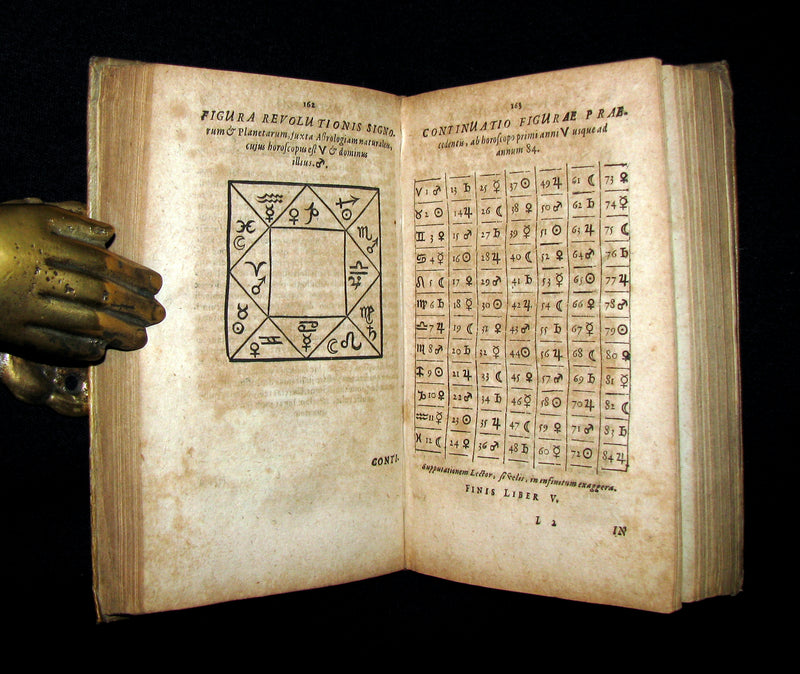 162
FIGURA REVOLUTIONIS SIGNO-
rum & Planetarum, juxta Astrologiam naturalem,
cujus horoscopus est ♈ & dominus
illius. ♂.
♒ ☿ ♀ ♑ ☉ ♐
♓ ☾ ♏ ♂
♈ ♂ ♎ ♃
☉ ♉ ♍ ♄
♀ ♊ ♋ ☿ ☾ ♌
CONTI-
163
CONTINUATIO FIGURAE PRAE-
cedentis, ab horoscopo primi anni ♈ usque ad
annum 84.
♈ 1 ♂ 13 ♄ 25 ☿ 37 ☉ 49 ♃ 61 ☾ 73 ♀
♉ 2 ☉ 14 ♃ 26 ☾ 38 ♀ 50 ♂ 62 ♄ 74 ☿
♊ 3 ♀ 15 ♂ 27 ♄ 39 ☿ 51 ☉ 63 ♃ 75 ☾
♋ 4 ☿ 16 ☉ 28 ♃ 40 ☾ 52 ♀ 64 ♂ 76 ♄
♌ 5 ☾ 17 ♀ 29 ♂ 41 ♄ 53 ☿ 65 ☉ 77 ♃
♍ 6 ♄ 18 ☿ 30 ☉ 42 ♃ 54 ☾ 66 ♀ 78 ♂
♎ 7 ♃ 19 ☾ 31 ♀ 43 ♂ 55 ♄ 67 ☿ 79 ☉
♏ 8 ♂ 20 ♄ 32 ☿ 44 ☉ 56 ♃ 68 ☾ 80 ♀
♐ 9 ☉ 21 ♃ 33 ☾ 45 ♀ 57 ♂ 69 ♄ 81 ☿
♑ 10 ♀ 22 ♂ 34 ♄ 46 ☿ 58 ☉ 70 ♃ 82 ☾
♒ 11 ☿ 23 ☉ 35 ♃ 47 ☾ 59 ♀ 71 ♂ 83 ♄
♓ 12 ☾ 24 ♀ 36 ♂ 48 ♄ 60 ☿ 72 ☉ 84 ♃
Supputationem Lector, si velis, in infinitum exaggera.
FINIS LIBER V.
L 2
IN